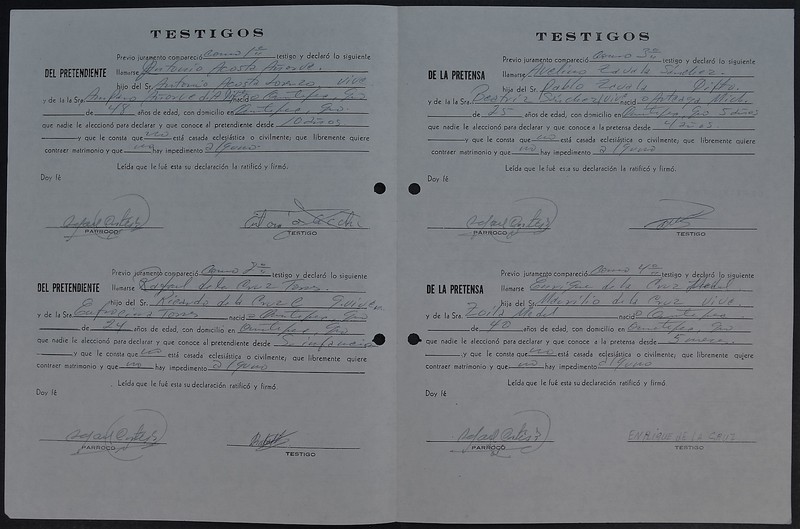 TESTIGOS
Previo juramento compareció como 1er testigo y declaró lo siguiente
DEL PRETENDIENTE llamarse Antonio Acosta
hijo del Sr. Antonio Acosta vive
y de la Sra. nació
18 de años de edad, con domicilio en Gro
que nadie le aleccionó para declarar y que conoce al pretendiente desde 10 años
y que le consta que no está casada eclesiástica o civilmente; que libremente quiere
contraer matrimonio y que no hay impedimento alguno
Leída que le fué esta su declaración la ratificó y firmó.
Doy fé
PARROCO TESTIGO
Previo juramento compareció como 2o testigo y declaró lo siguiente
DEL PRETENDIENTE llamarse Rafael de la Cruz Torres
hijo del Sr. Ricardo de la Cruz C
y de la Sra. Eufrocina Torres nació Gro
24 años de edad, con domicilio en Gro
que nadie le aleccionó para declarar y que conoce al pretendiente desde Su infancia
y que le consta que no está casada eclesiástica o civilmente; que libremente quiere
contraer matrimonio y que no hay impedimento alguno
Leída que le fué esta su declaración ratificó y firmó.
Doy fé
PARROCO TESTIGO
TESTIGOS
Previo juramento compareció como 3o testigo y declaró lo siguiente
DE LA PRETENSA llamarse Avelino Zavala
hijo del Sr. Pablo Zavala
y de la Sra. Beatriz nació Arteaga Mich.
de 25 años de edad, con domicilio en Gro 5 años
que nadie le aleccionó para declarar y que conoce a la pretensa desde 4 años
y que le consta que no está casada eclesiástica o civilmente; que libremente quiere
contraer matrimonio y que no hay impedimento alguno
Leída que le fué esta su declaración la ratificó y firmó.
Doy fé
PARROCO TESTIGO
Previo juramento compareció como 4o testigo y declaró lo siguiente
DE LA PRETENSA llamarse Enrique de la Cruz Medel
hijo del Sr. de la Cruz vive
y de la Sra. Zoila Medel nació
de 40 años de edad, con domicilio en Gro
que nadie le aleccionó para declarar y que conoce a la pretensa desde 5 meses
y que le consta que no está casada eclesiástica o civilmente; que libremente quiere
contraer matrimonio y que no hay impedimento alguno
Leída que le fué esta su declaración la ratificó y firmó.
Doy fé
ENRIQUE DE LA CRUZ
PARROCO TESTIGO